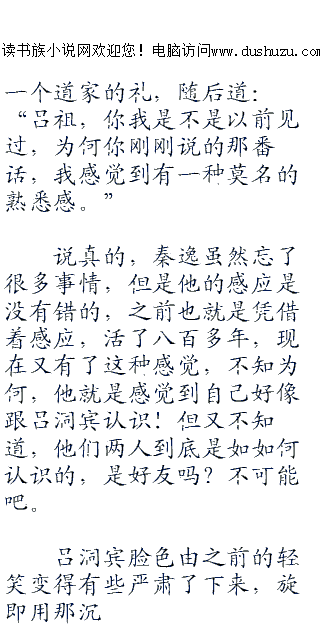 读书族小说网欢迎您！电脑访问www.dushuzu.com
一个道家的礼，随后道：
“吕祖，你我是不是以前见
过，为何你刚刚说的那番
话，我感觉到有一种莫名的
熟悉感。”
说真的，秦逸虽然忘了
很多事情，但是他的感应是
没有错的，之前也就是凭借
着感应，活了八百多年，现
在又有了这种感觉，不知为
何，他就是感觉到自己好像
跟吕洞宾认识！但又不知
道，他们两人到底是如如何
认识的，是好友吗？不可能
吧。
吕洞宾脸色由之前的轻
笑变得有些严肃了下来，旋
即用那沉